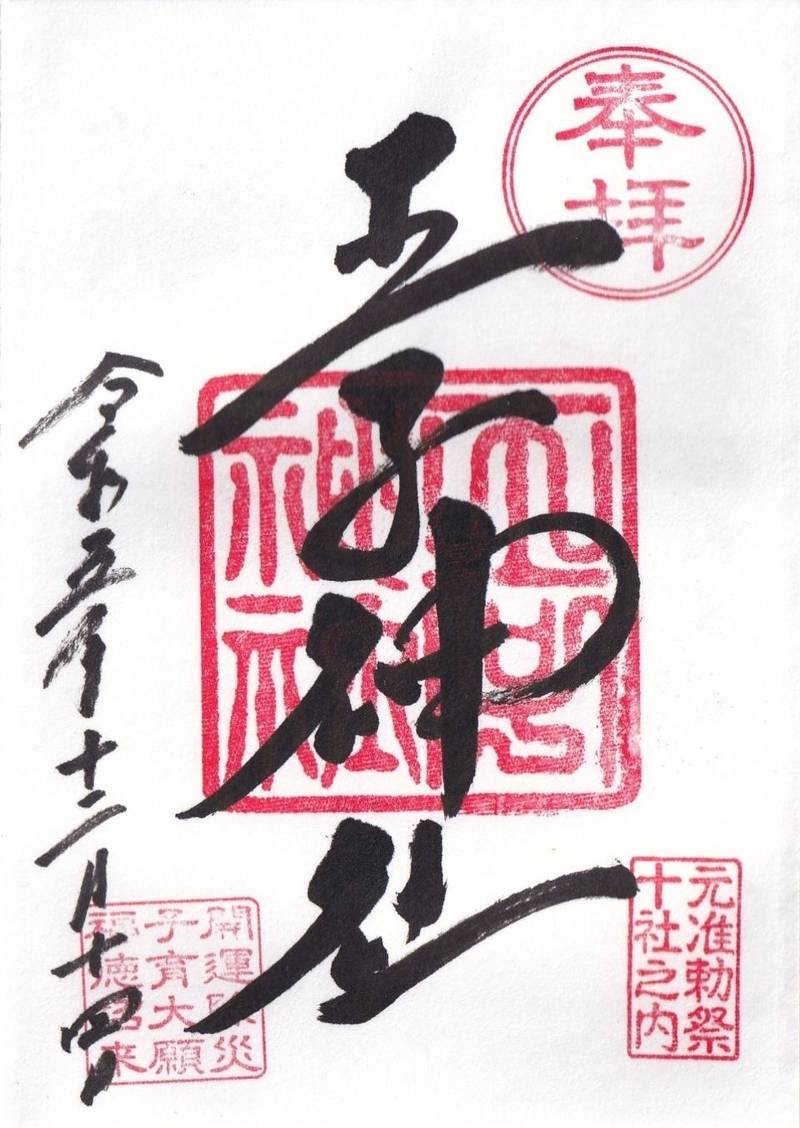 奉拝
王子神社
元准勅祭
十社之内
令和五年十二月十四日
開運除災
子育大願
福徳招来